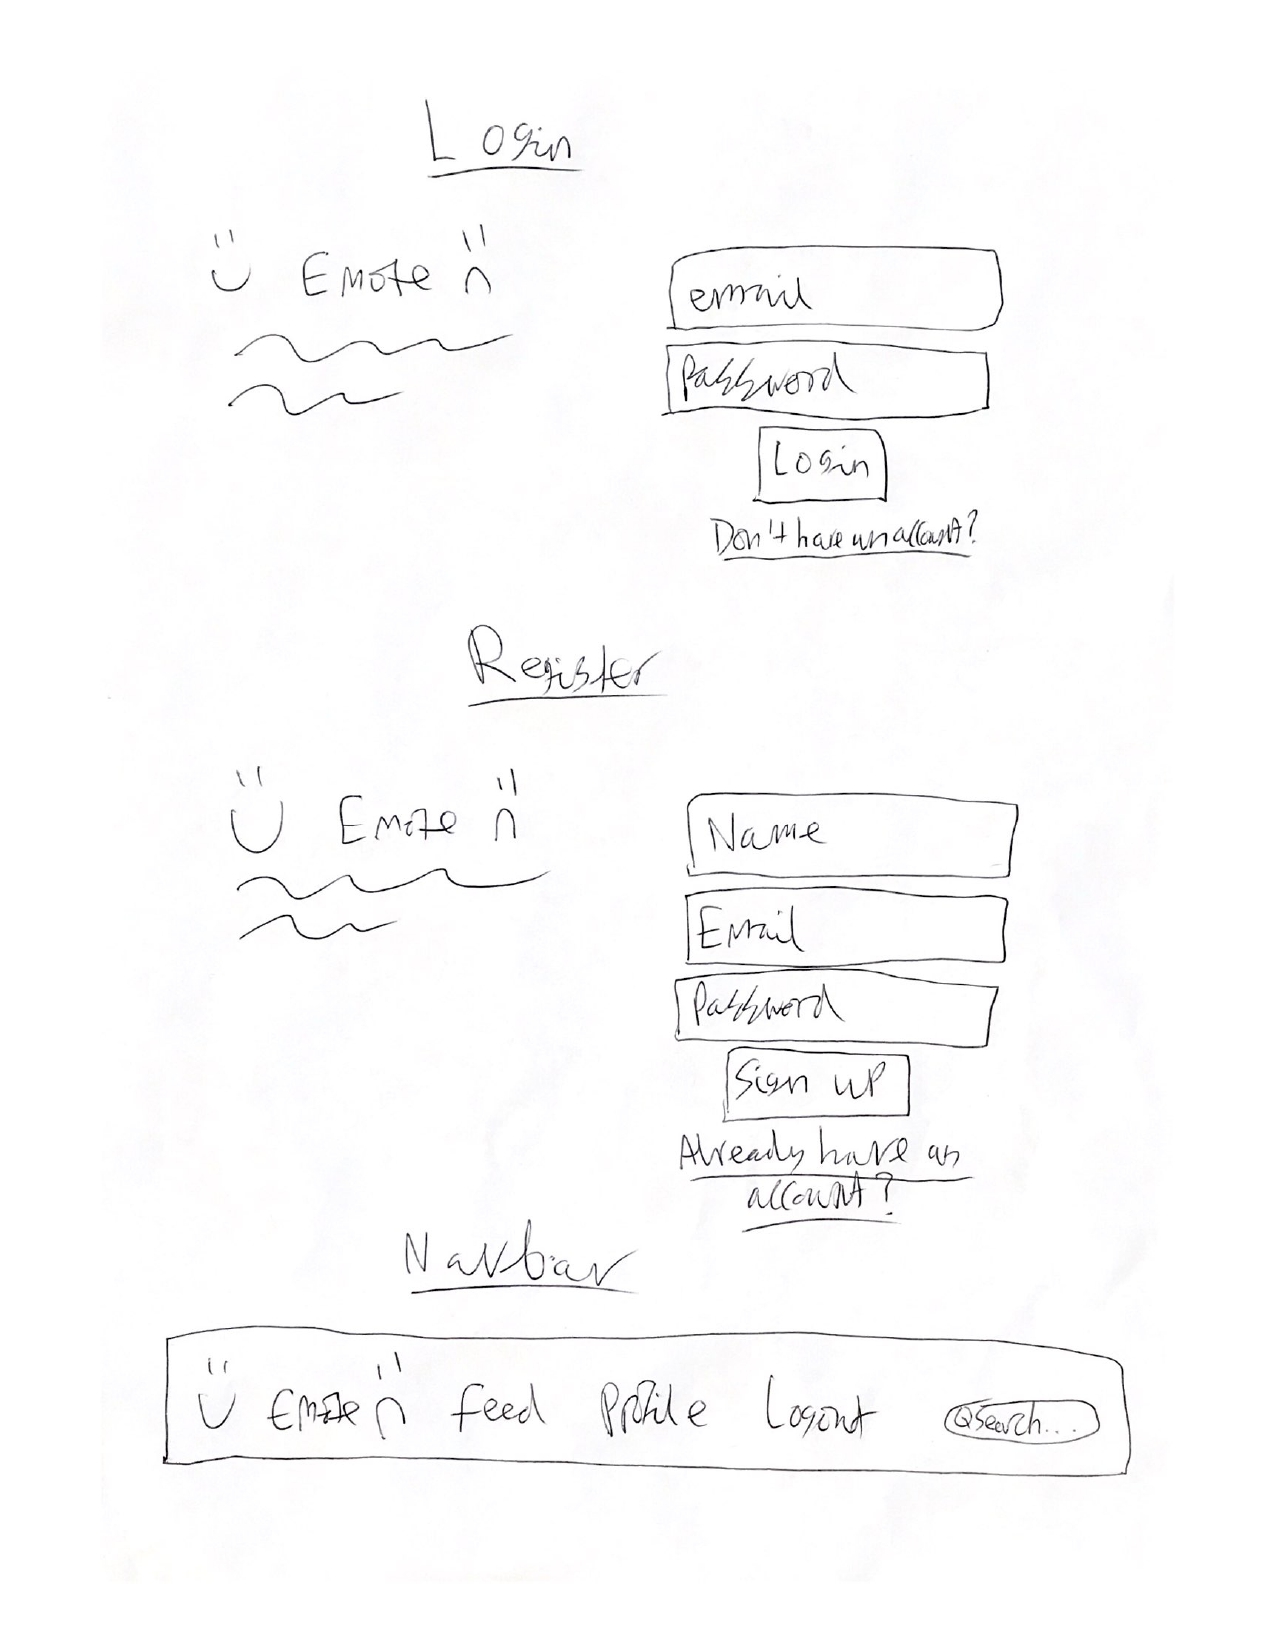 Login
Emote
email
Password
Login
Don't have an account?
Register
Emote
Name
Email
Password
Sign up
Already have an
account?
Navbar
Emote feed Profile Logout Search...